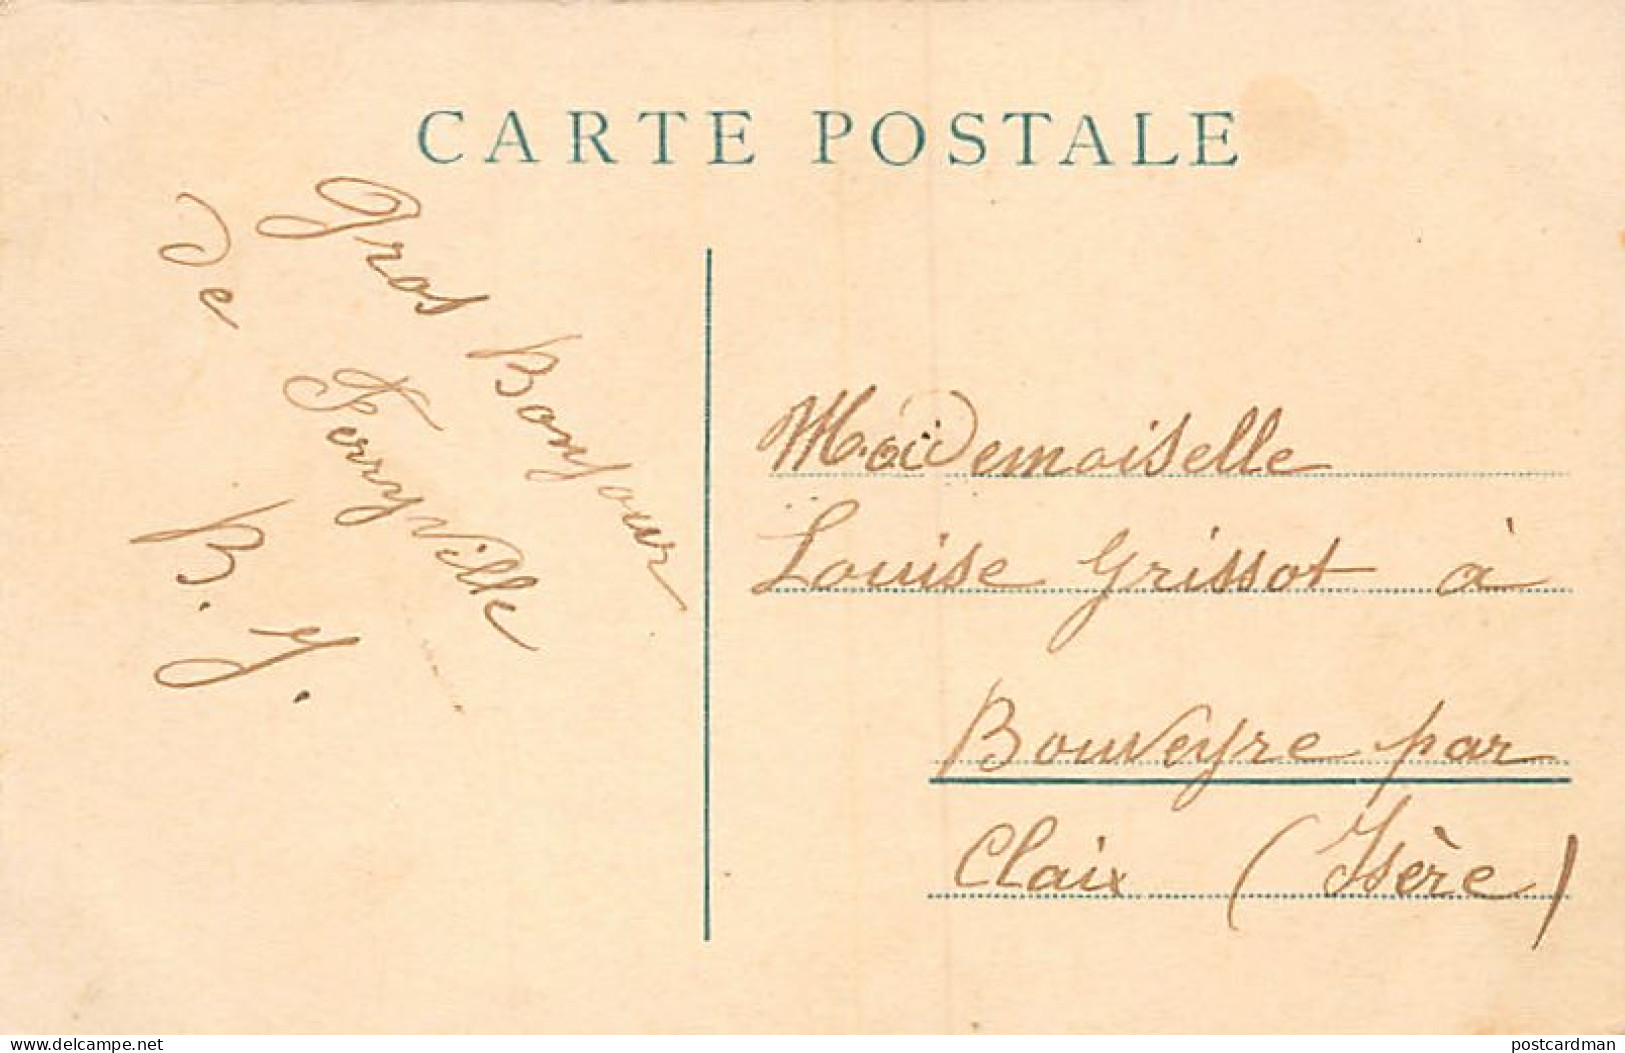 CARTE POSTALE
Gros Bonjour
de Ferryville
B. J.
Mademoiselle
Louise Grissot à
Bouveyre par
Claix (Isère)
www.delcampe.net
postcardman